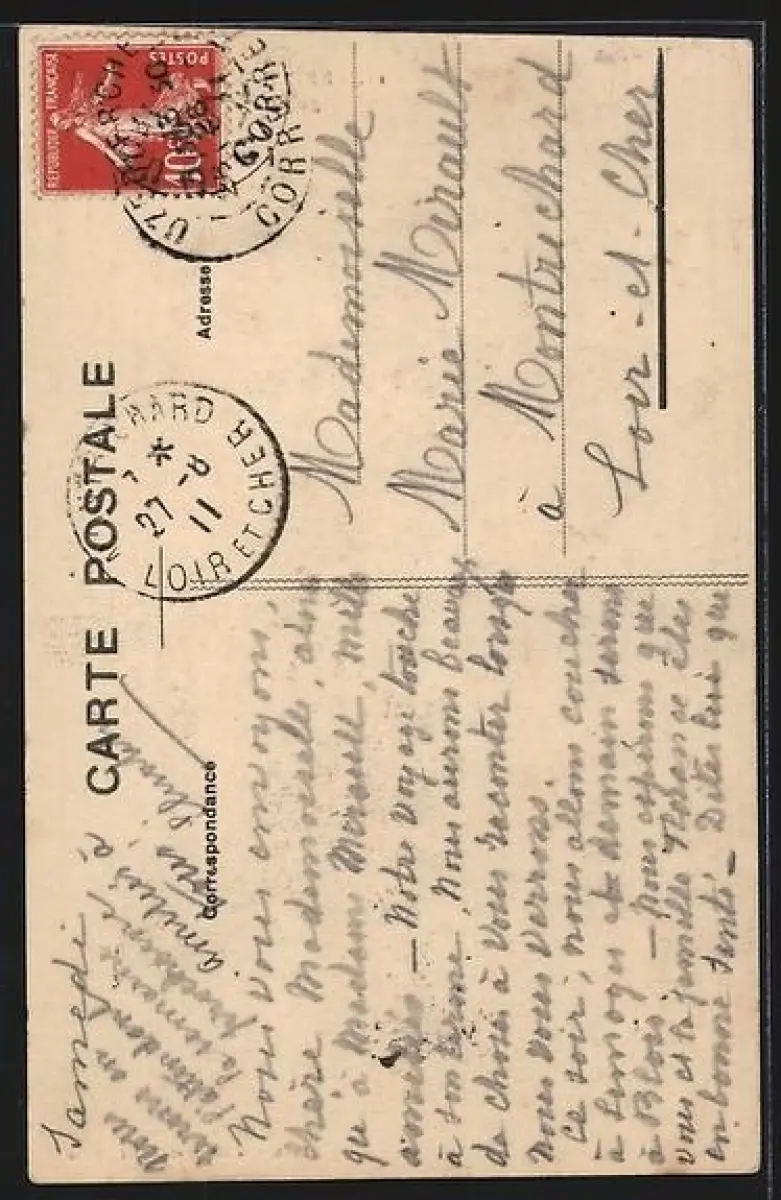 CARTE POSTALE
Correspondance
Adresse
REPUBLIQUE FRANÇAISE
POSTES
10
UZERCHE
CORR
LOIR ET CHER
27 -8
11
Samedi
Nous vous envoyons,
chère Mademoiselle, ainsi
qu'à Madame Mirault, mille
amitiés - Notre voyage touche
à son terme. Nous aurons beaucoup
de choses à vous raconter lorsque
nous vous verrons.
Ce soir, nous allons coucher
à Limoges et demain serons
à Blois - Nous espérons que
vous et la famille êtes
en bonne santé - Dites lui que
nous
l'attendons
la semaine
prochaine
amitiés à
Mademoiselle
Marie Mirault
à Montrichard
Loir-et-Cher